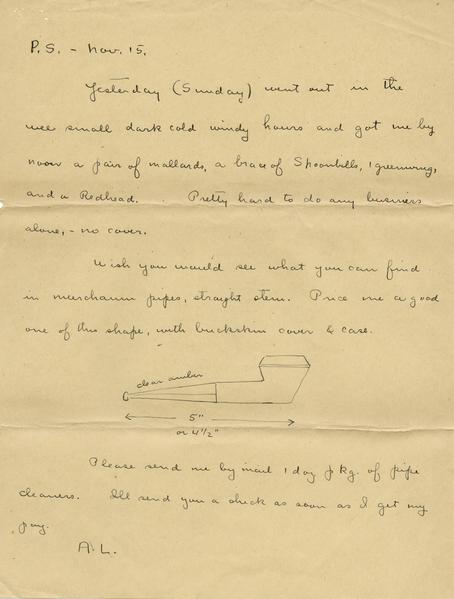 P.S. - Nov. 15.
Yesterday (Sunday) went out in the
wee small dark cold windy hours and got me by
noon a pair of mallards, a brace of Spoonbills, 1 greenwing,
and a Redhead. Pretty hard to do any business
alone, - no cover.
Wish you would see what you can find
in meerchaum pipes, straight stem. Price me a good
one of this shape, with buckskin cover & case.
clear amber
5"
or 4 1/2"
Please send me by mail 1 doz pkg. of pipe
cleaners. I'll send you a check as soon as I get my
pay.
A.L.